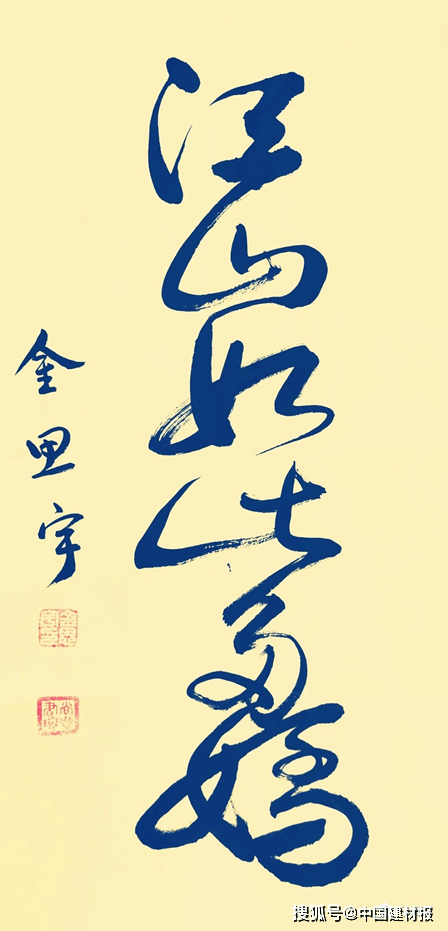 江山如此多娇
金思宇
搜狐号@中国建材报